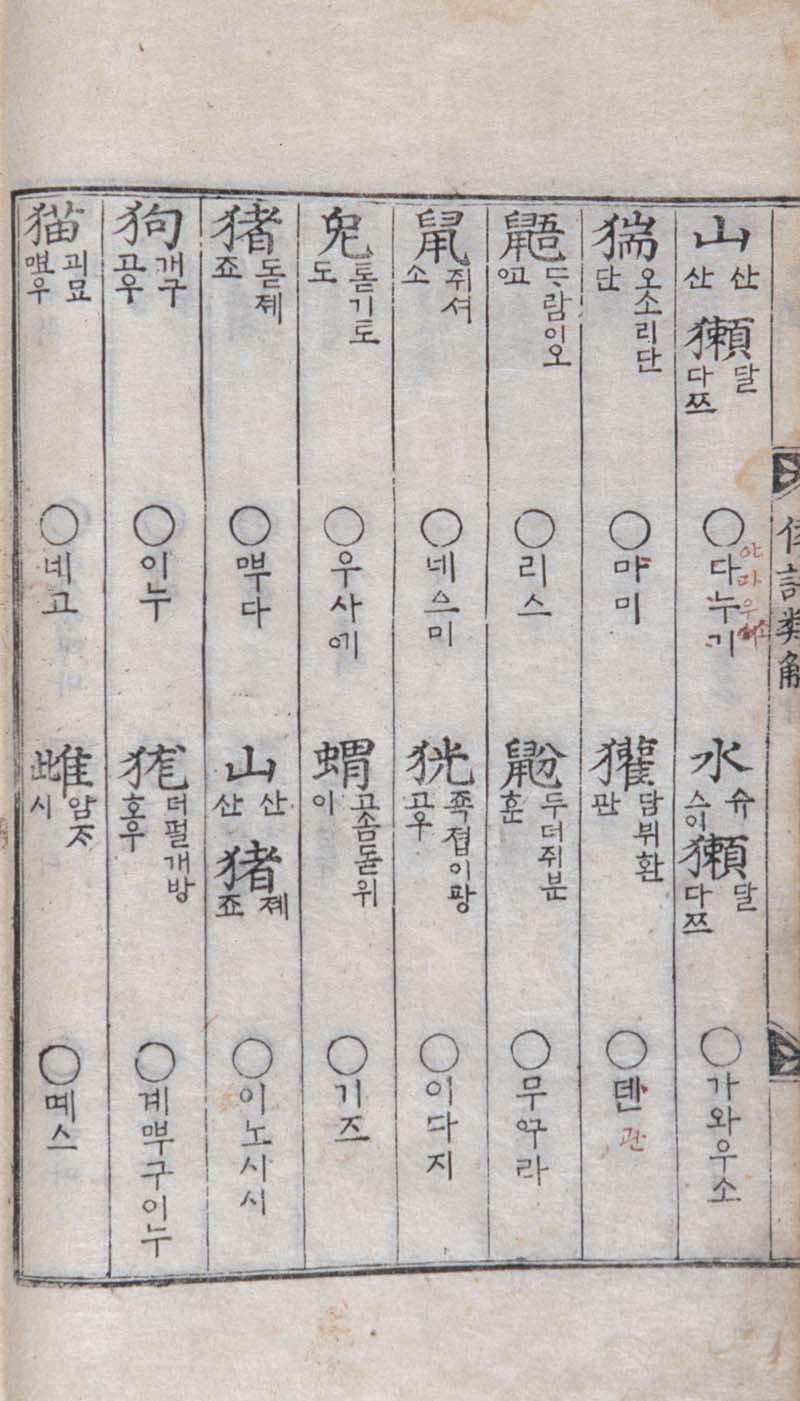 倭語類解
山 산 산 獺 달 다쯔 ○다누기 야마우소 水 슈 스이 獺 달 다쯔 ○가와우소
猯 오소리단 단 ○마미 獾 담뷔환 관 ○덴 관
鼯 ᄃᆞ람이오 ᅌᅩ ○리스 鼢 두더쥐분 훈 ○무ᅌᅮ라
鼠 쥐셔 소 ○네스미 㹰 죡졉이광 고우 ○이다지
兔 톧기토 도 ○우사ᅌᅵ 蝟 고솜돋위 이 ○기즈
猪 돋졔 죠 ○ᄜᅮ다 山 산 산 猪 졔 죠 ○이노시시
狗 개구 고우 ○이누 狵 더펄개방 호우 ○계ᄜᅮ구이누
猫 괴묘 ᄜᅭ우 ○네고 雌 암ᄌᆞ 시 ○ᄜᅦ스